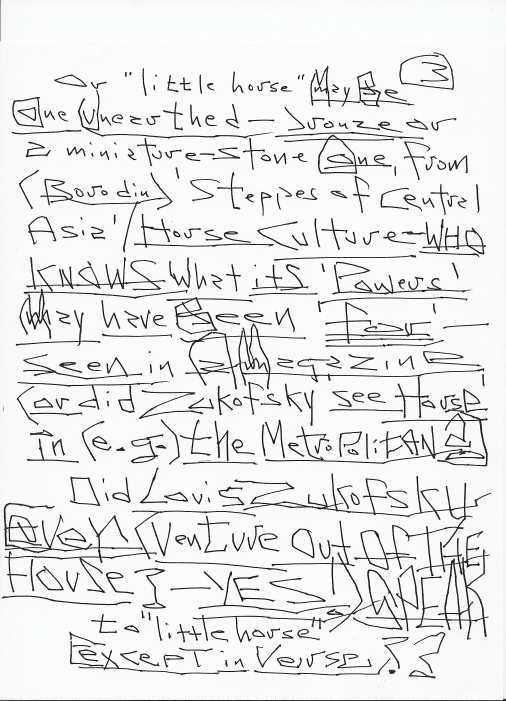 3
Or "little house" May Be
One Unearthed – bronze or
a miniature–stone One, from
(Borodin) 'Steppes of Central
Asia' / House Culture–WHO
KNOWS What its 'Powers'
May have Been 'For' –
seen in a Magazine
(or did Zukofsky see 'House'
in (e.g.) the MetropolitAN?
Did Louis Zukofsky
ever (Venture Out OF THE
House? – YES)
to "little house"
except in Verse??